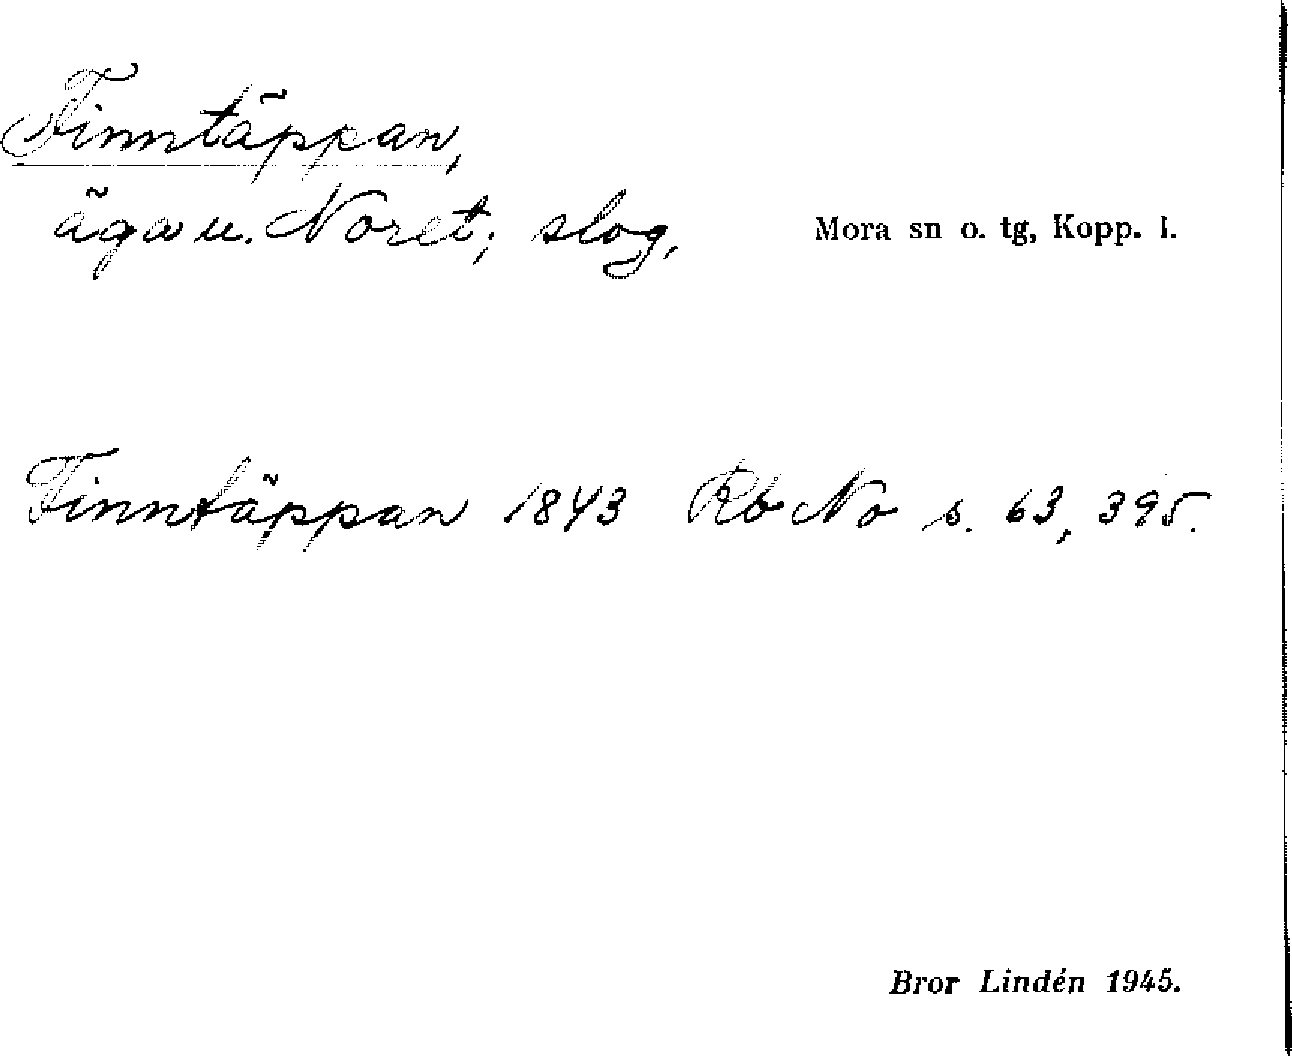 Finntäppan,
äga u. Noret; slog,
Mora sn o. tg, Kopp. l.
Finntäppan 1843 Rb No s. 63, 395.
Bror Lindén 1945.